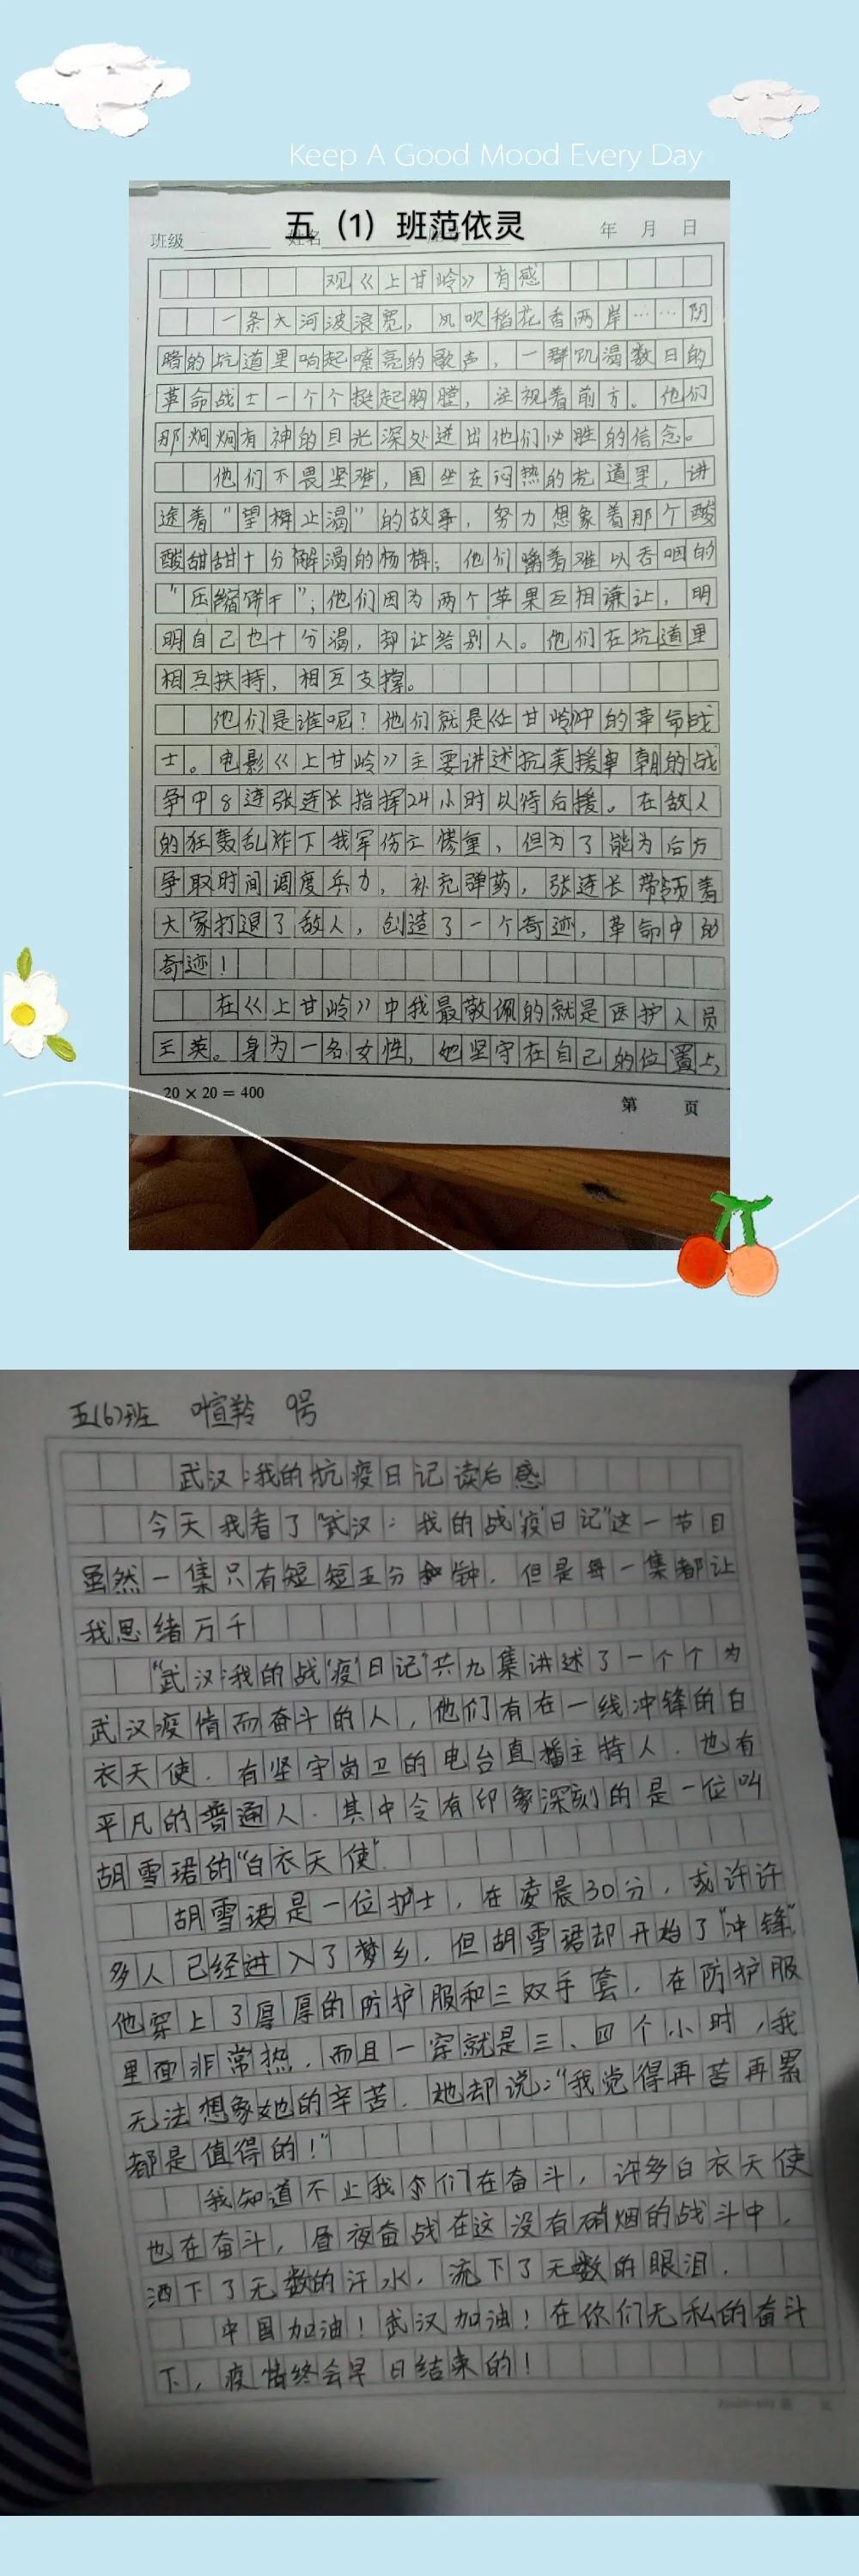 Keep A Good Mood Every Day
五（1）班范依灵
班级 姓名 年 月 日
观《上甘岭》有感
一条大河波浪宽，风吹稻花香两岸……阴
暗的坑道里响起嘹亮的歌声，一群饥渴数日的
革命战士一个个挺起胸膛，注视着前方。他们
那炯炯有神的目光深处迸出他们必胜的信念。
他们不畏坚难，围坐在闷热的坑道里，讲
途着“望梅止渴”的故事，努力想象着那个酸
酸甜甜十分解渴的杨梅；他们嚼着难以吞咽的
“压缩饼干”；他们因为两个苹果互相谦让，明
明自己也十分渴，却让给别人。他们在坑道里
相互扶持，相互支撑。
他们是谁呢？他们就是在甘岭中的革命战
士。电影《上甘岭》主要讲述抗美援朝的战
争中8连张连长指挥24小时以待后援。在敌人
的狂轰乱炸下我军伤亡惨重，但为了能为后方
争取时间调度兵力，补充弹药，张连长带领着
大家打退了敌人，创造了一个奇迹，革命中的
奇迹！
在《上甘岭》中我最敬佩的就是医护人员
王英。身为一名女性，她坚守在自己的位置上，
20×20=400
第 页
五(6)班 喧羚 9号
武汉：我的抗疫日记读后感
今天我看了“武汉：我的战‘疫’日记”这一节目
虽然一集只有短短五分钟．但是每一集都让
我思绪万千
“武汉：我的战‘疫’日记”共九集讲述了一个个为
武汉疫情而奋斗的人，他们有在一线冲锋的白
衣天使．有坚守岗卫的电台直播主持人．也有
平凡的普通人．其中令有印象深刻的是一位叫
胡雪珺的“白衣天使”．
胡雪珺是一位护士，在凌晨30分，或许许
多人已经进入了梦乡．但胡雪珺却开始了“冲锋”
他穿上了厚厚的防护服和三双手套．在防护服
里面非常热．而且一穿就是三、四个小时，我
无法想象她的辛苦．她却说：“我觉得再苦再累
都是值得的！”
我知道不止我们在奋斗，许多白衣天使
也在奋斗，昼夜奋战在这没有硝烟的战斗中．
洒下了无数的汗水，流下了无数的眼泪．
中国加油！武汉加油！在你们无私的奋斗
下，疫情终会早日结束的！